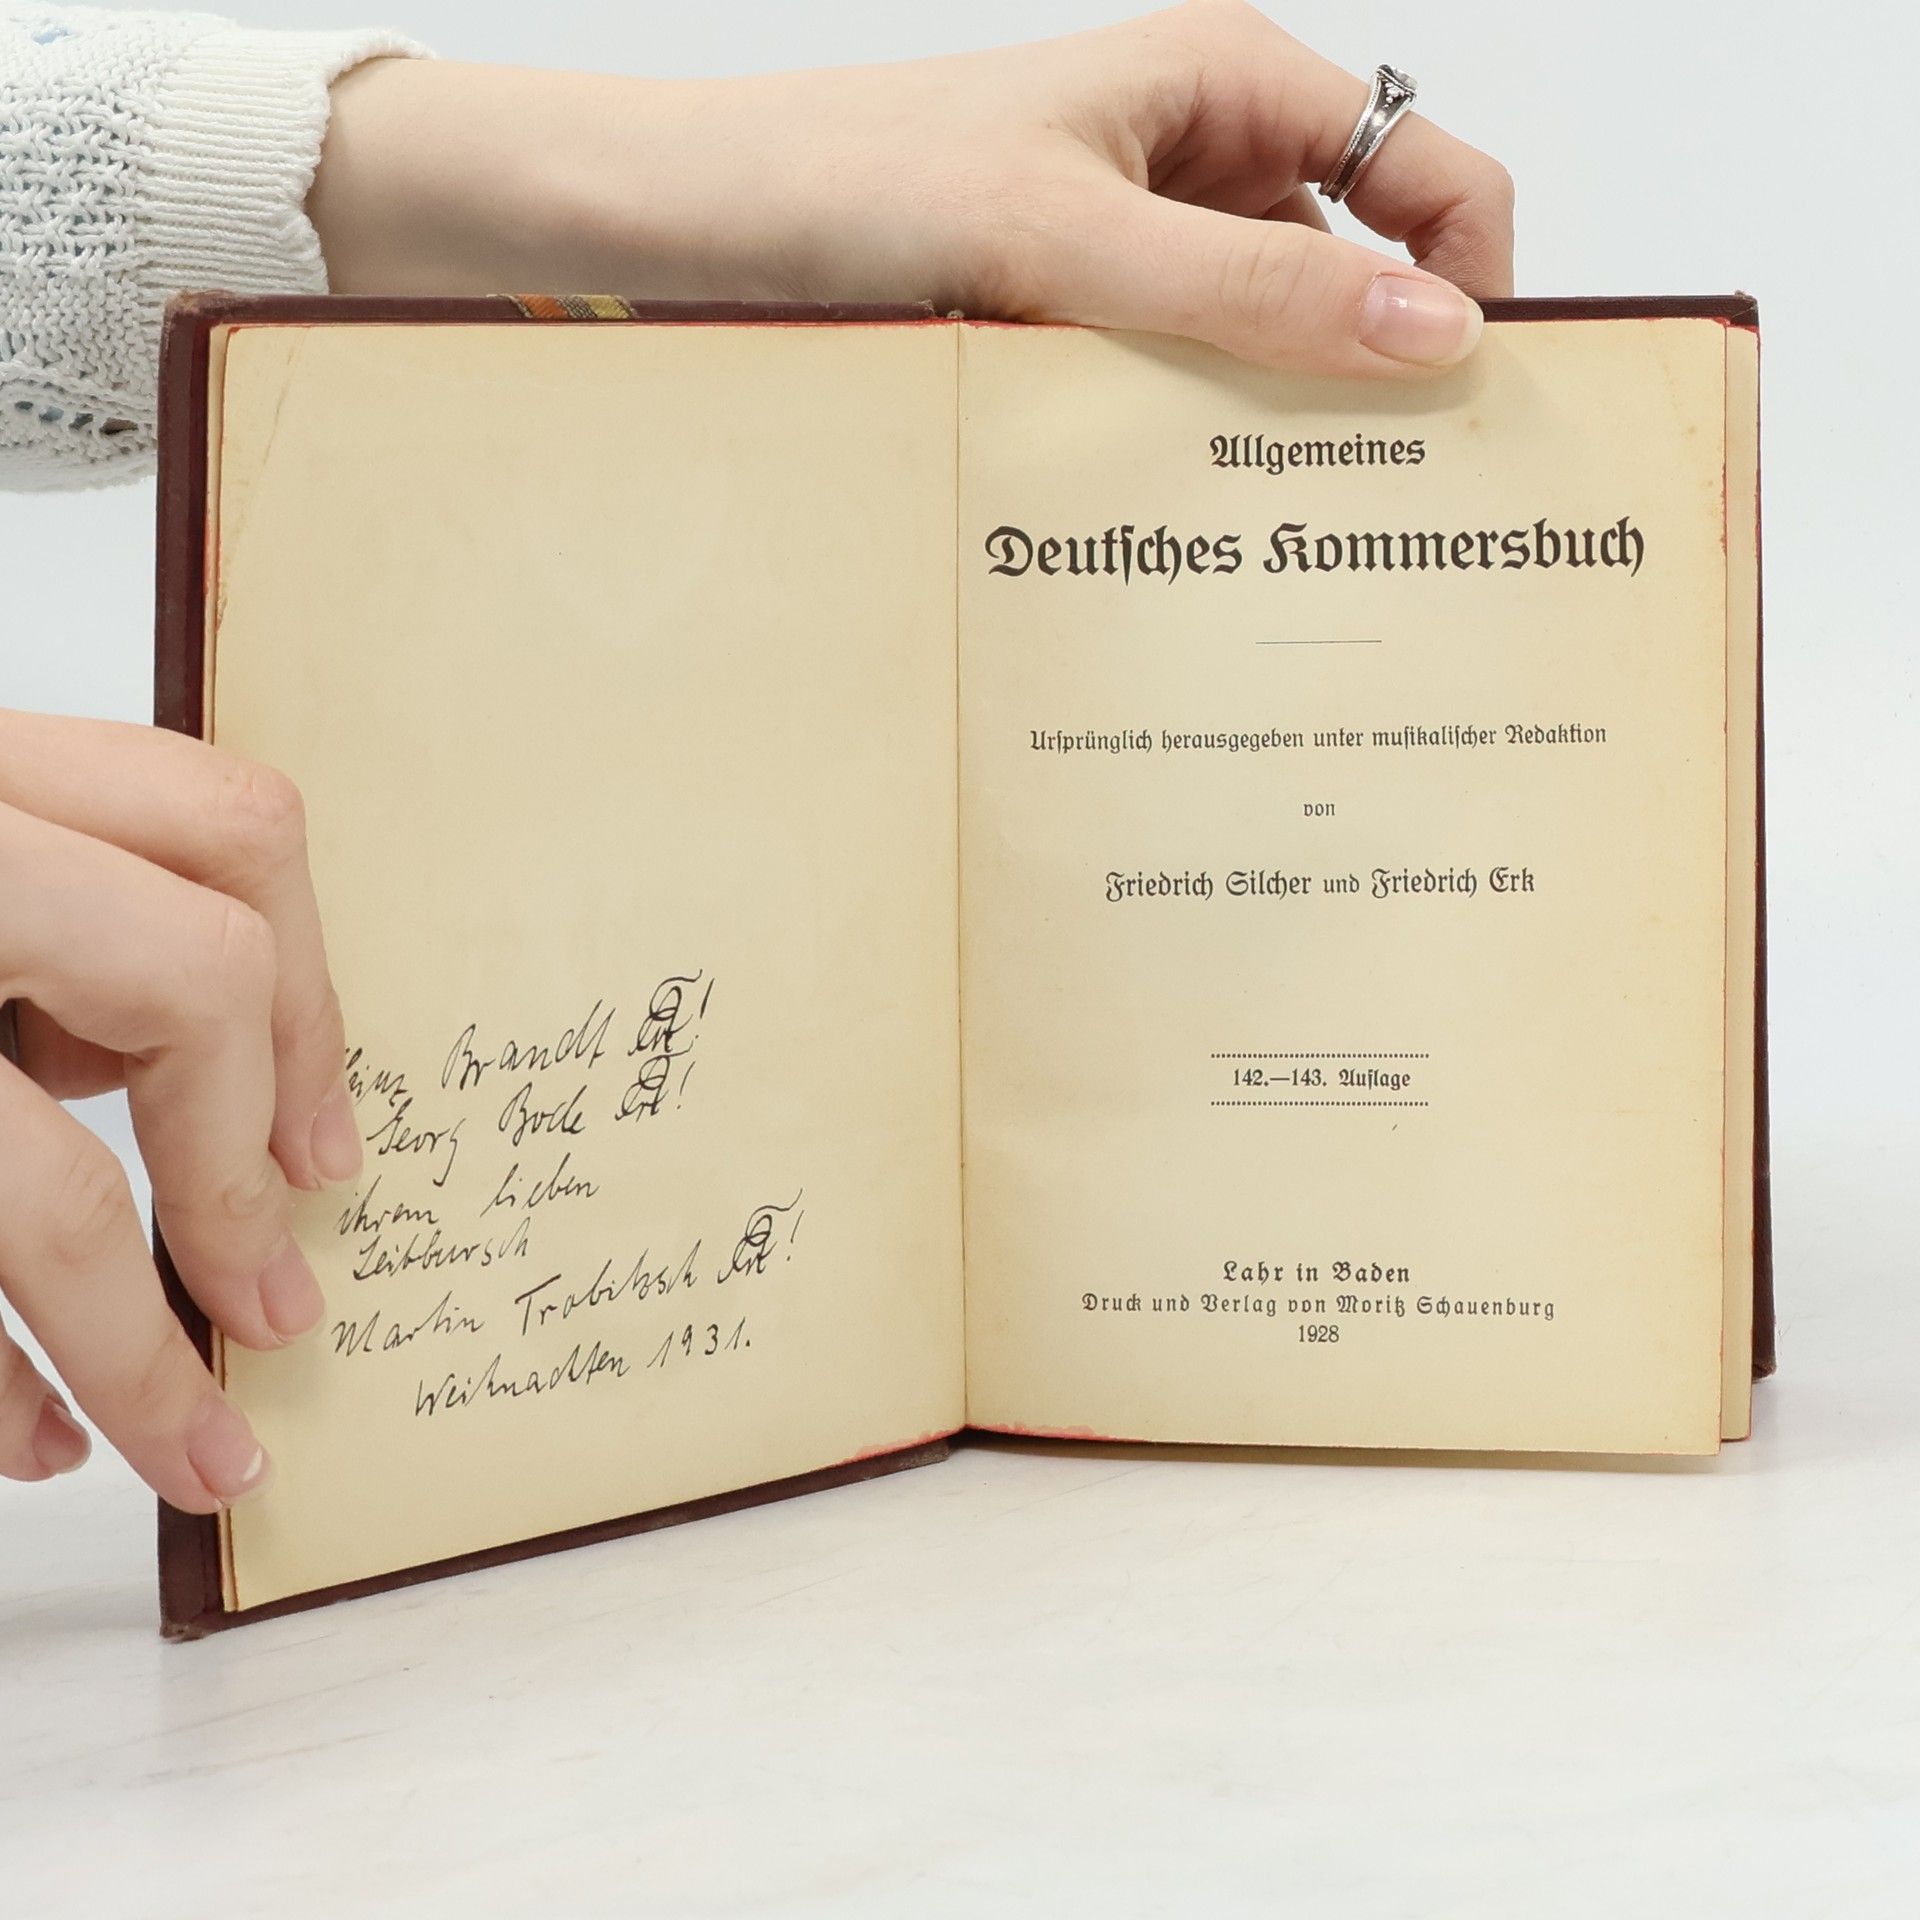 Brandt
Georg Bode
ihrem lieben
Leibbursch
Martin Trobitzsch
Weihnachten 1931.
Allgemeines
Deutsches Kommersbuch
Ursprünglich herausgegeben unter musikalischer Redaktion
von
Friedrich Silcher und Friedrich Erk
142.—143. Auflage
Lahr in Baden
Druck und Verlag von Moritz Schauenburg
1928